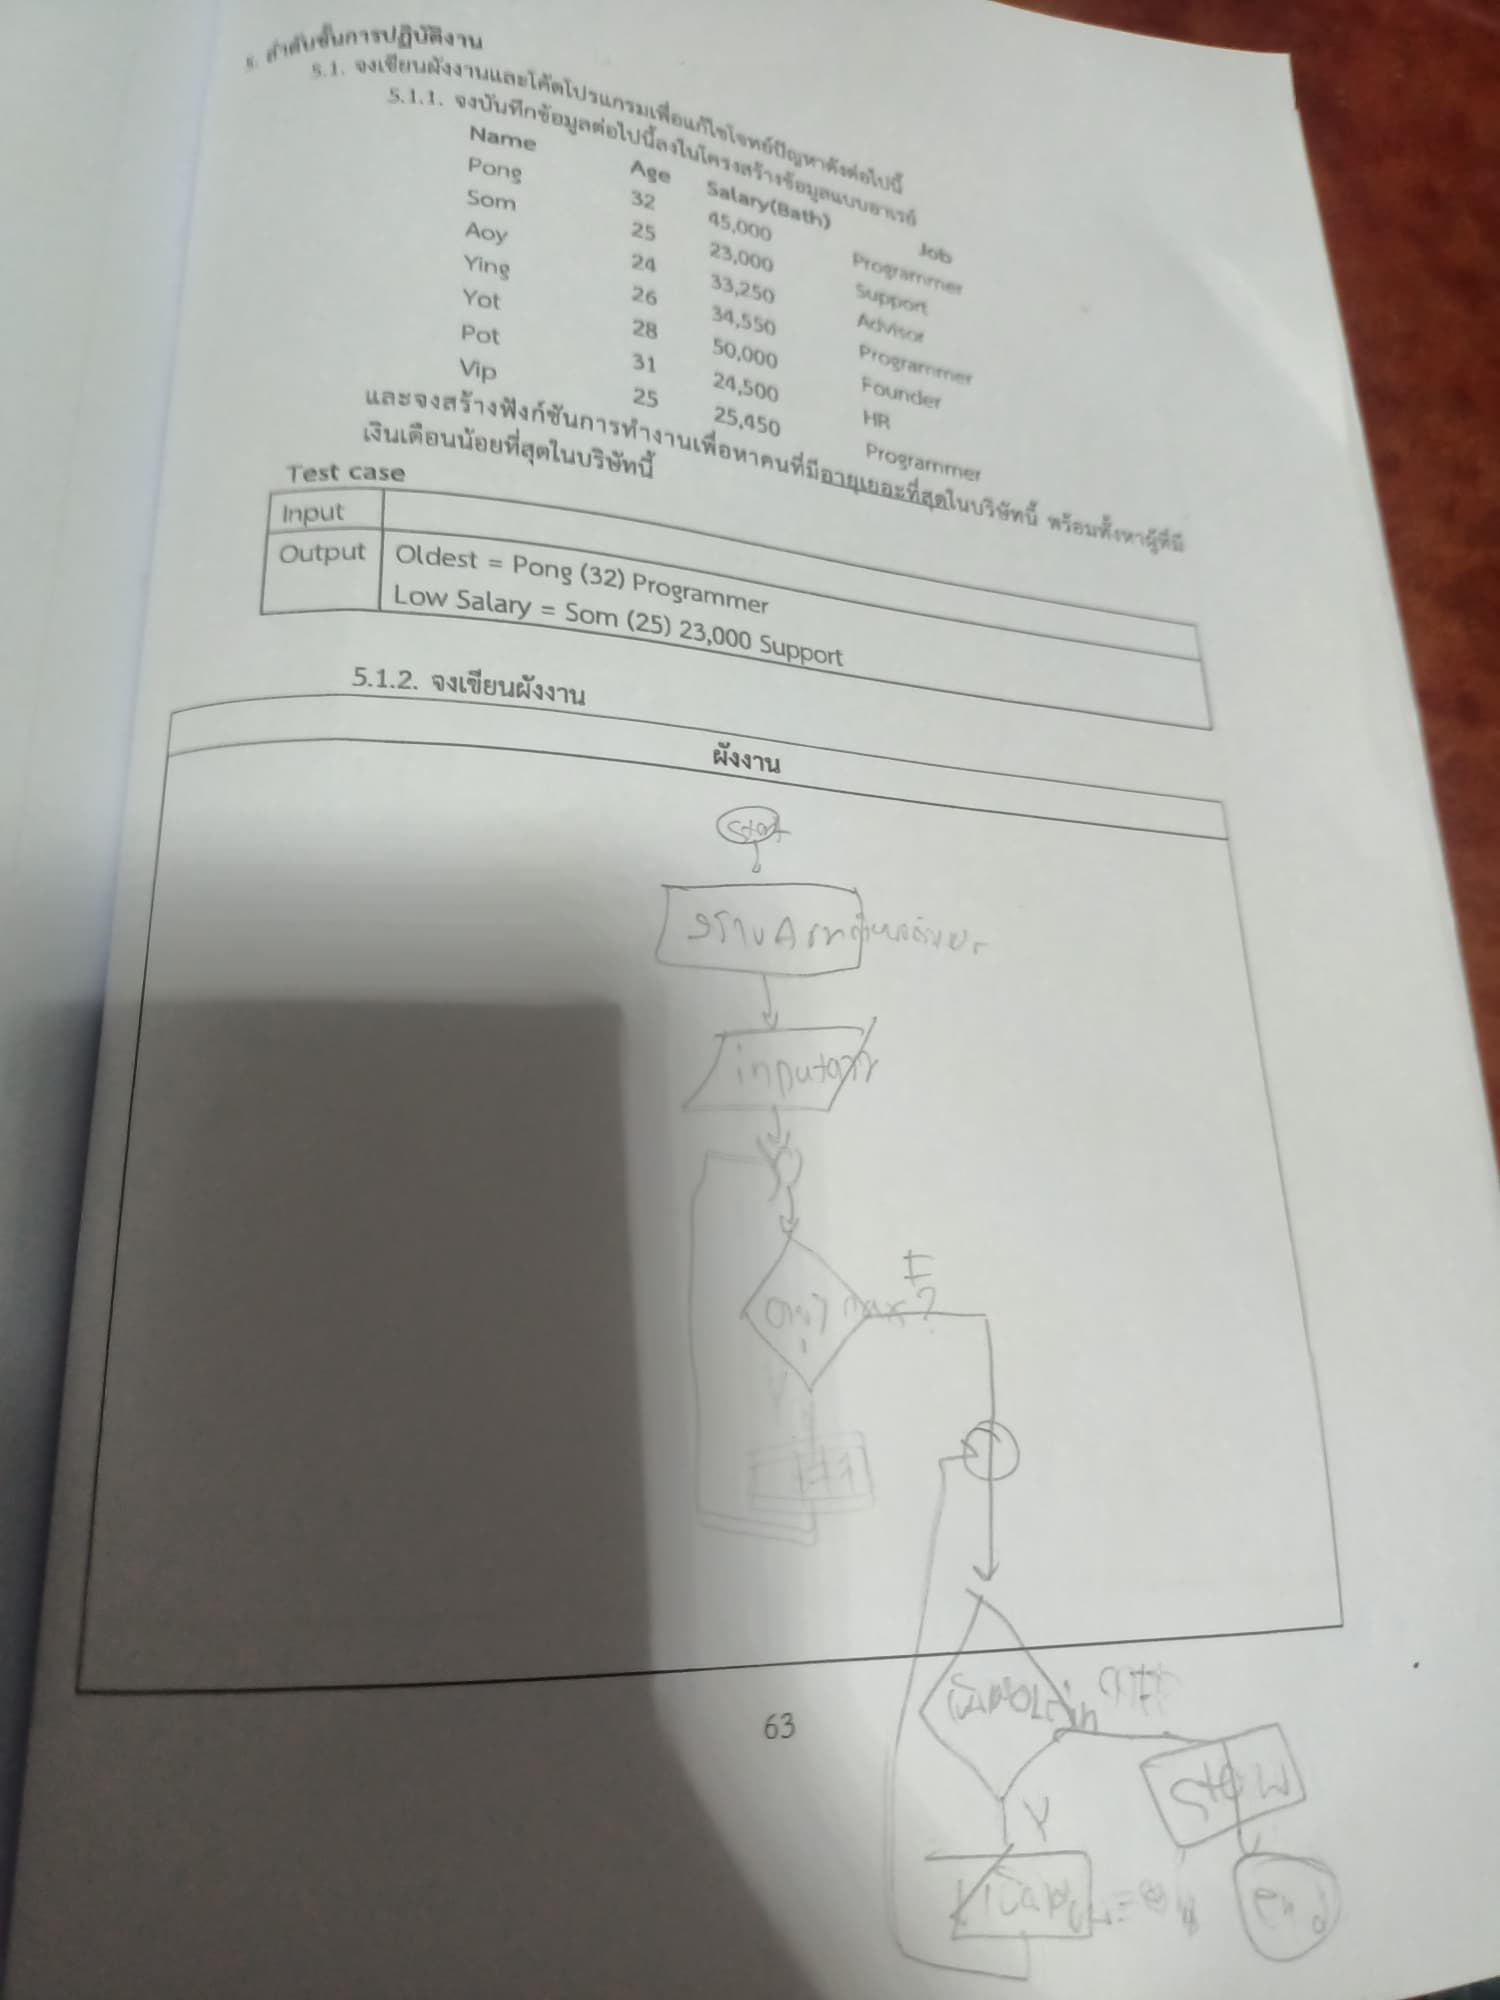 5. ลำดับขั้นการปฏิบัติงาน
5.1. จงเขียนผังงานและโค้ดโปรแกรมเพื่อแก้ไขโจทย์ปัญหาดังต่อไปนี้
5.1.1. จงบันทึกข้อมูลต่อไปนี้ลงในโครงสร้างข้อมูลแบบอาเรย์
Name Age Salary(Bath) Job
Pong 32 45,000 Programmer
Som 25 23,000 Support
Aoy 24 33,250 Advisor
Ying 26 34,550 Programmer
Yot 28 50,000 Founder
Pot 31 24,500 HR
Vip 25 25,450 Programmer
และจงสร้างฟังก์ชันการทำงานเพื่อหาคนที่มีอายุเยอะที่สุดในบริษัทนี้ พร้อมทั้งหาผู้ที่มี
เงินเดือนน้อยที่สุดในบริษัทนี้
Test case
Input
Output Oldest = Pong (32) Programmer
Low Salary = Som (25) 23,000 Support
5.1.2. จงเขียนผังงาน
ผังงาน
Start
สร้าง
input
max?
Y
show
end
63